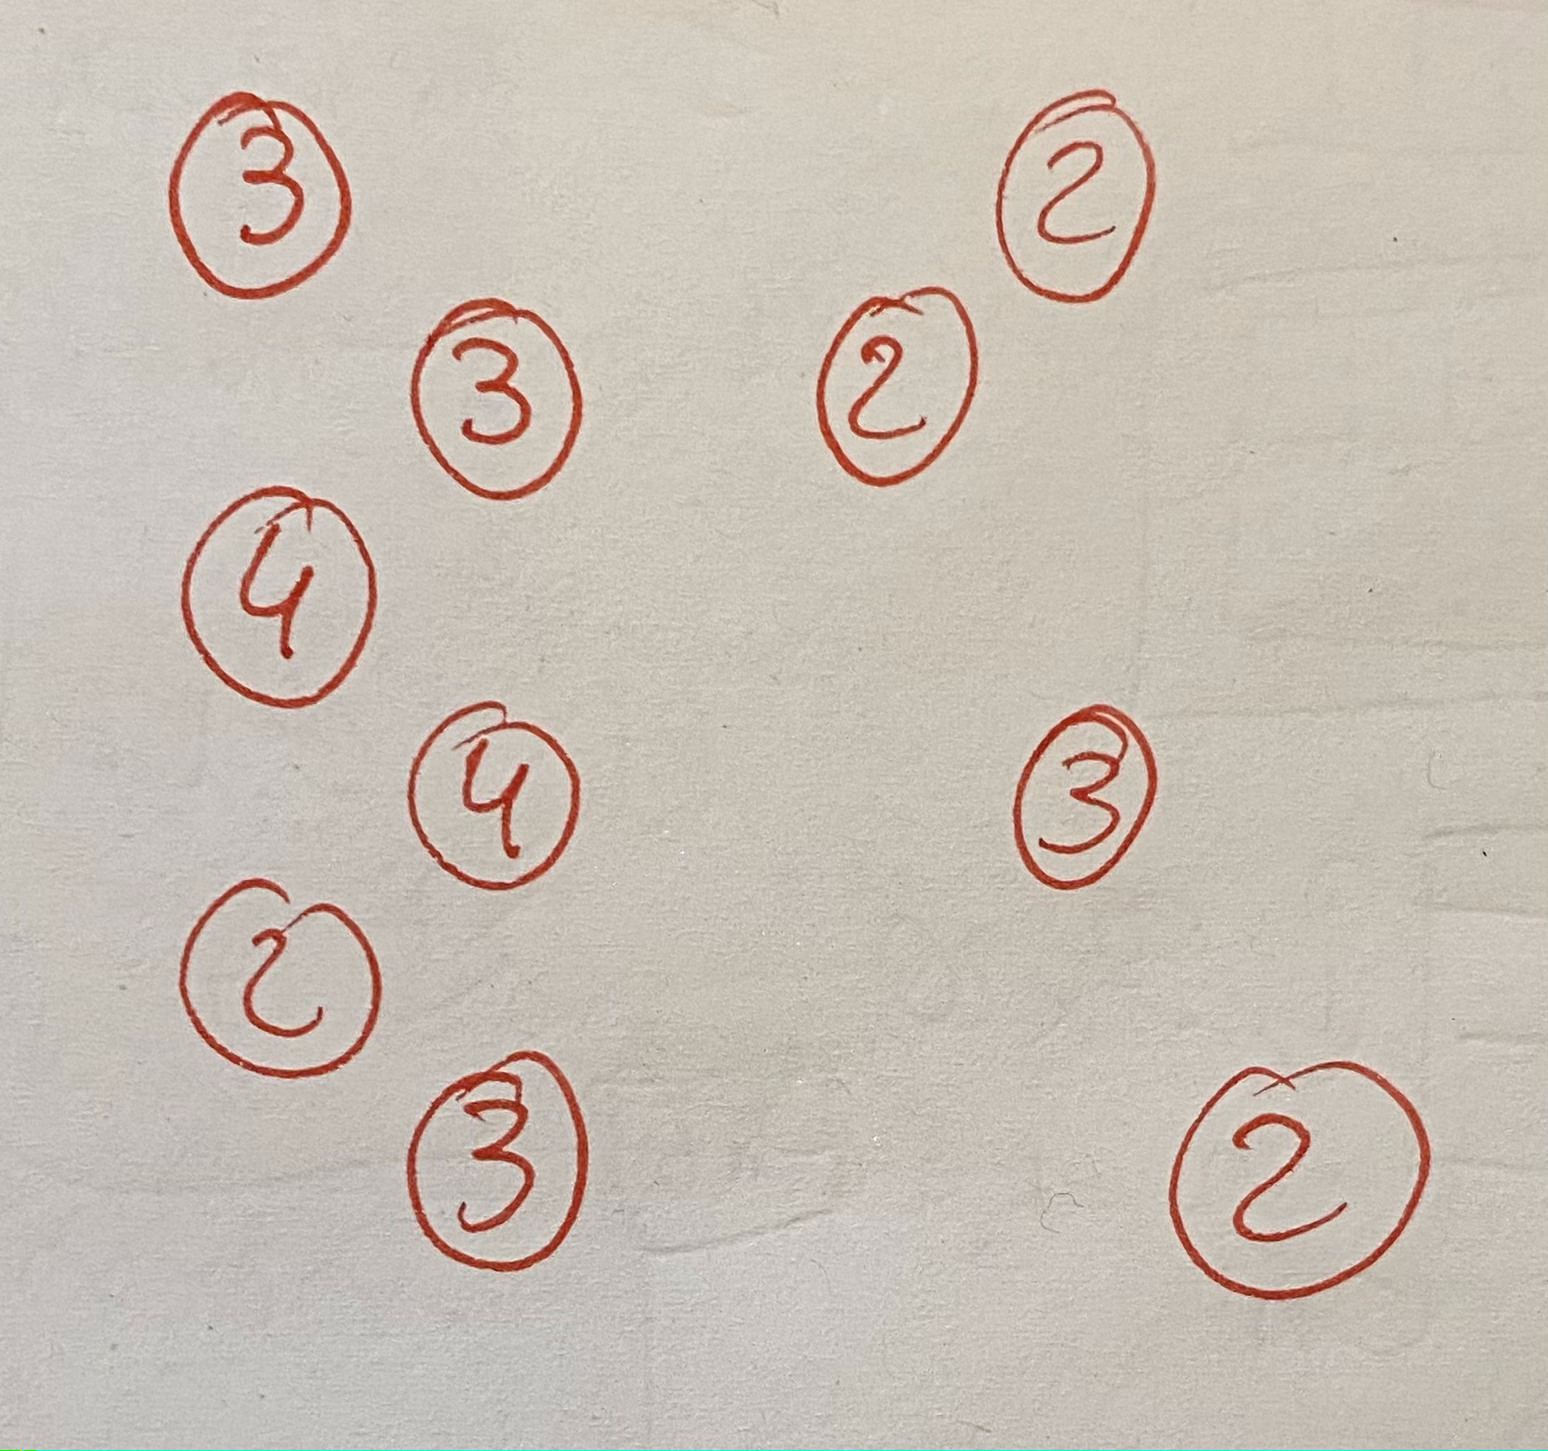 3 2
3 2
4
4 3
2
3 2